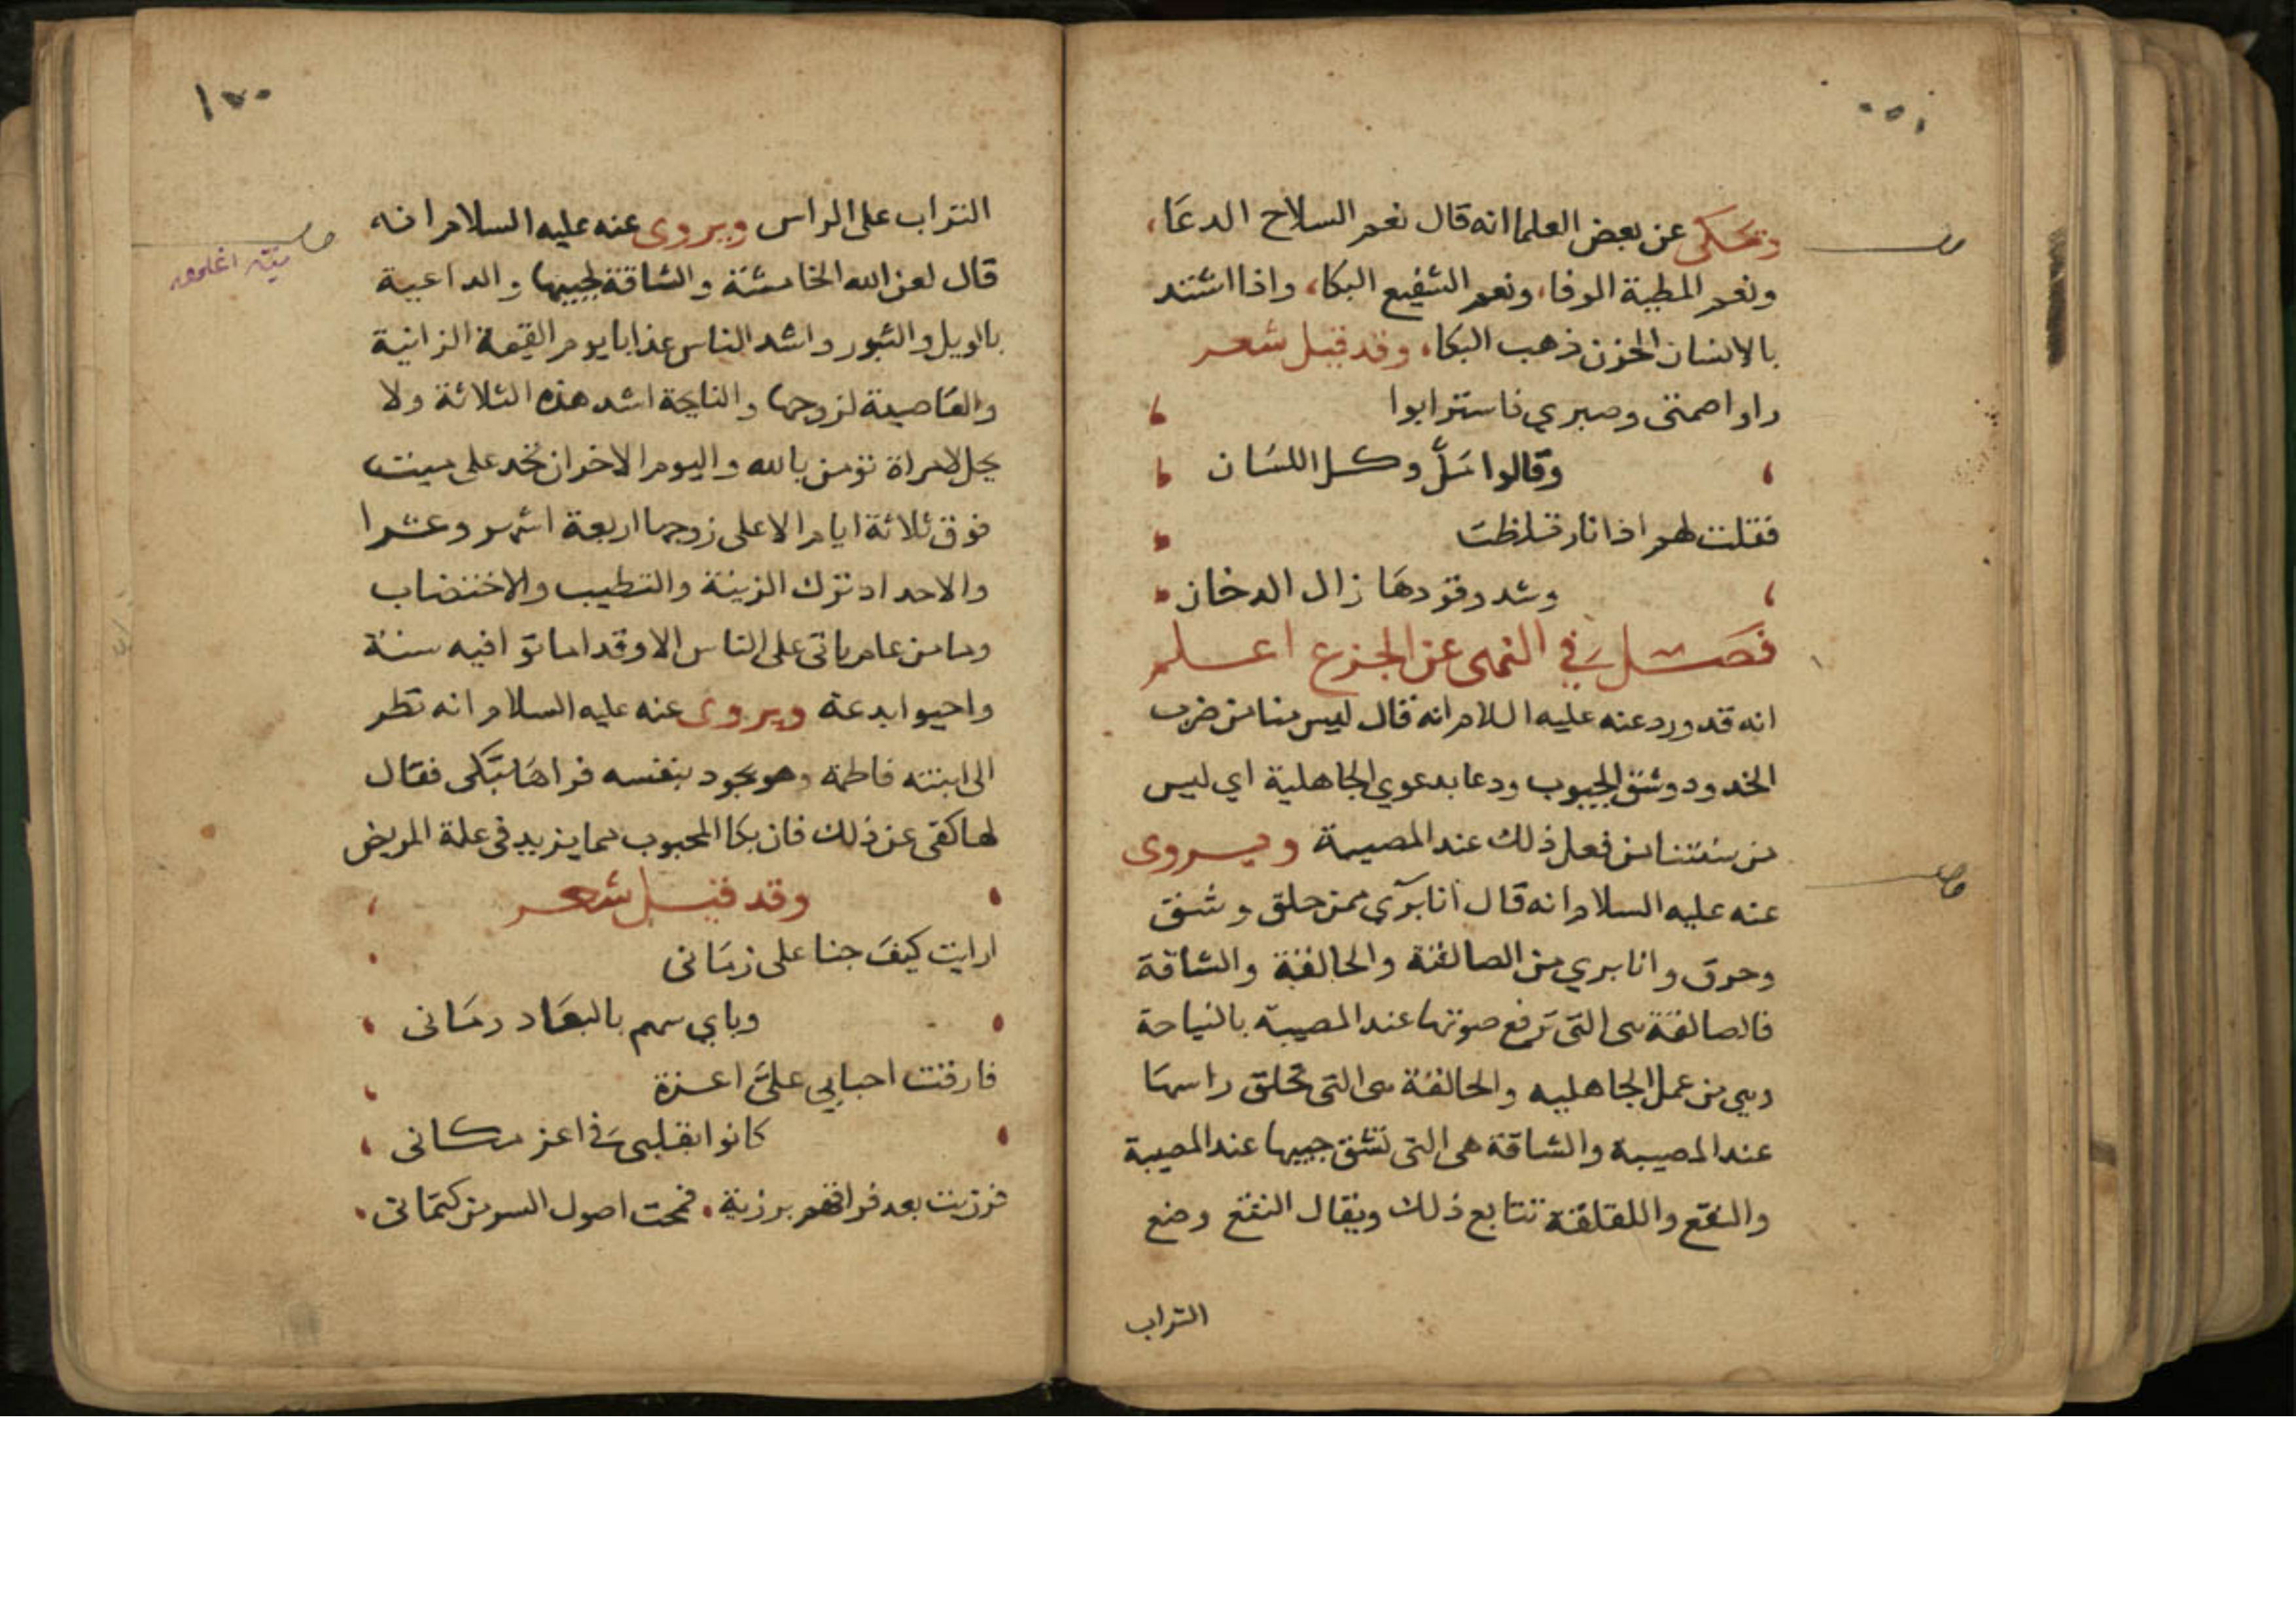 ويحكى عن بعض العلما انه قال نعم السلاح الدعَا،
ونعم المطية الوفا، ونعم الشفيع البكا، واذا اشتد
بالانسان الحزن ذهب البكا، وقد قيل شعر
راوا صمتى وصبري فاسترابوا
وقالوا سَلّ وكل اللسَان
فقلت لهم اذا نار تلظت
وشد وقودهَا زال الدخان
فَصل في النهى عن الجزع اعلم
انه قد ورد عنه عليه السلام انه قال ليس منا من ضرب
الخدود وشق الجيوب ودعا بدعوي الجاهلية اي ليس
من سنتنا من فعل ذلك عند المصيبة ويروى
عنه عليه السلام انه قال انا برَي ممن حلق وشق
وحرق وانا بري من الصالقة والحالقة والشاقة
فالصالقة هى التى ترفع صوتها عند المصيبة بالنياحة
وهي من عمل الجاهليه والحالقة هى التى تحلق راسهَا
عند المصيبة والشاقة هى التى تشق جيبها عند المصيبة
والنقع واللقلقة تتابع ذلك ويقال النقع وضع
التراب
١٠٠
التراب على الراس ويروى عنه عليه السلام انه
قال لعن الله الخامشة والشاقة لجيبها والداعية
بالويل والثبور واشد الناس عذابا يوم القيمة الزانية
والعَاصية لزوجها والنايحة اشد هذه الثلاثة ولا
يحل لامراة تؤمن بالله واليوم الاخر ان تحد على ميت
فوق ثلاثة ايام الا على زوجها اربعة اشهر وعشرا
والاحداد ترك الزينة والتطيب والاختضاب
وما من عام ياتى على الناس الا وقد اماتوا فيه سنة
واحيوا بدعة ويروى عنه عليه السلام انه نظر
الى ابنته فاطمة وهو يجود بنفسه فراهَا تبكى فقال
لها كفى عن ذلك فان بكا المحبوب مما يزيد فى علة المريض
وقد قيل شعر
ارايت كيفَ جنا على زمَانى
وباي سهم بالبعَاد رمَانى
فارقت احبابي علىَّ اعزة
كانوا بقلبى في اعز مكانى
فرزيت بعد فراقهم برزية، فمحت اصول السر من كتمَانى